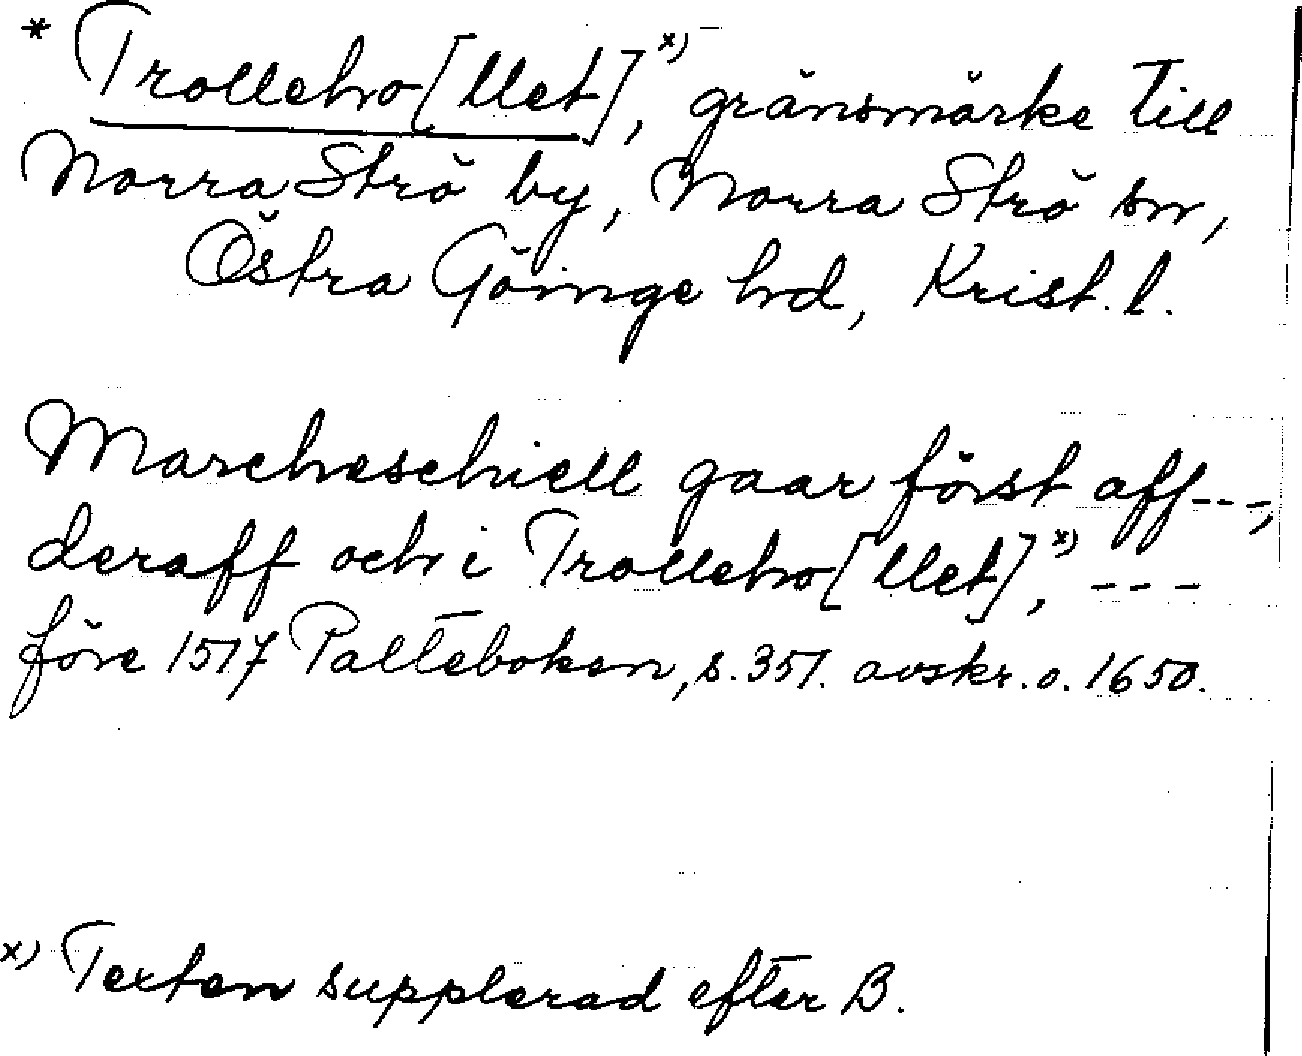 * Trolleho[llet]x), gränsmärke till
Norra Strö by, Norra Strö sn,
Östra Göinge hd, Krist. l.
Marcheschiell gaar först aff---,
deraff och i Trolleho[llet]x), ---
före 1517 Palteboken, s. 351. avskr. o. 1650.
x) Texten supplerad efter B.